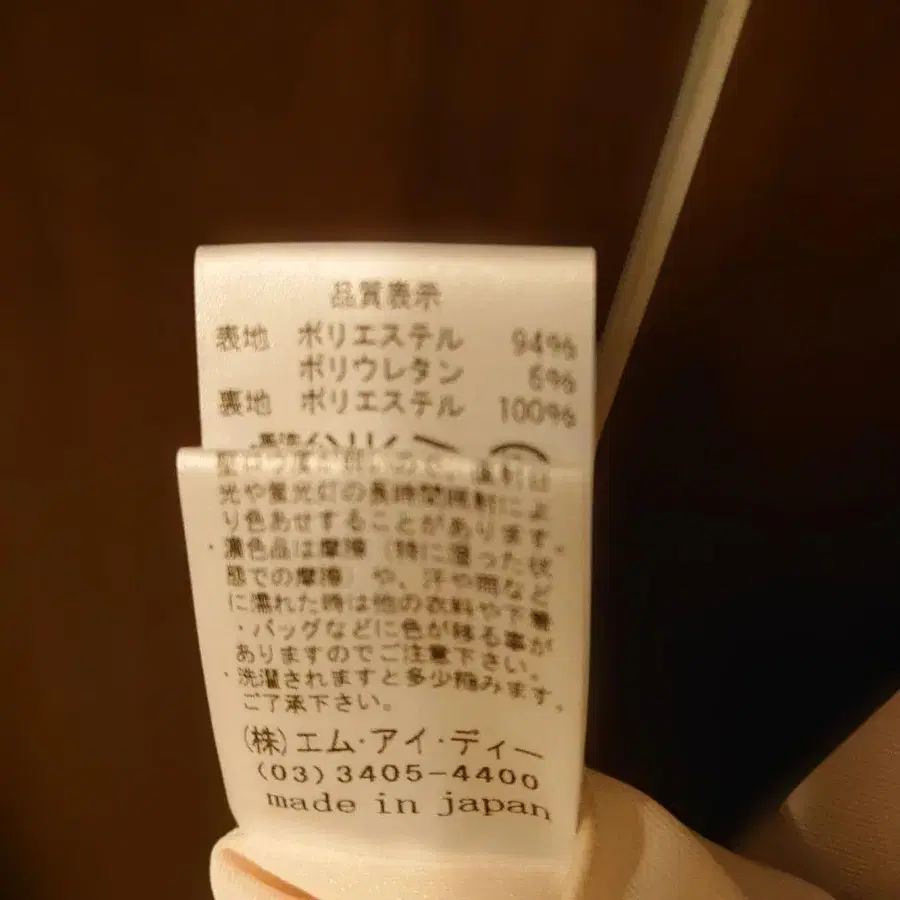 品質表示
表地 ポリエステル 94%
ポリウレタン 6%
裏地 ポリエステル 100%
光や蛍光灯の長時間照射によ
り色あせすることがあります。
・濃色品は摩擦（特に湿った状
態での摩擦）や、汗や雨など
に濡れた時は他の衣料や下着
・バッグなどに色が移る事が
ありますのでご注意下さい。
・洗濯されますと多少縮みます。
ご了承下さい。
(株)エム・アイ・ディー
(03)3405-4400
made in japan